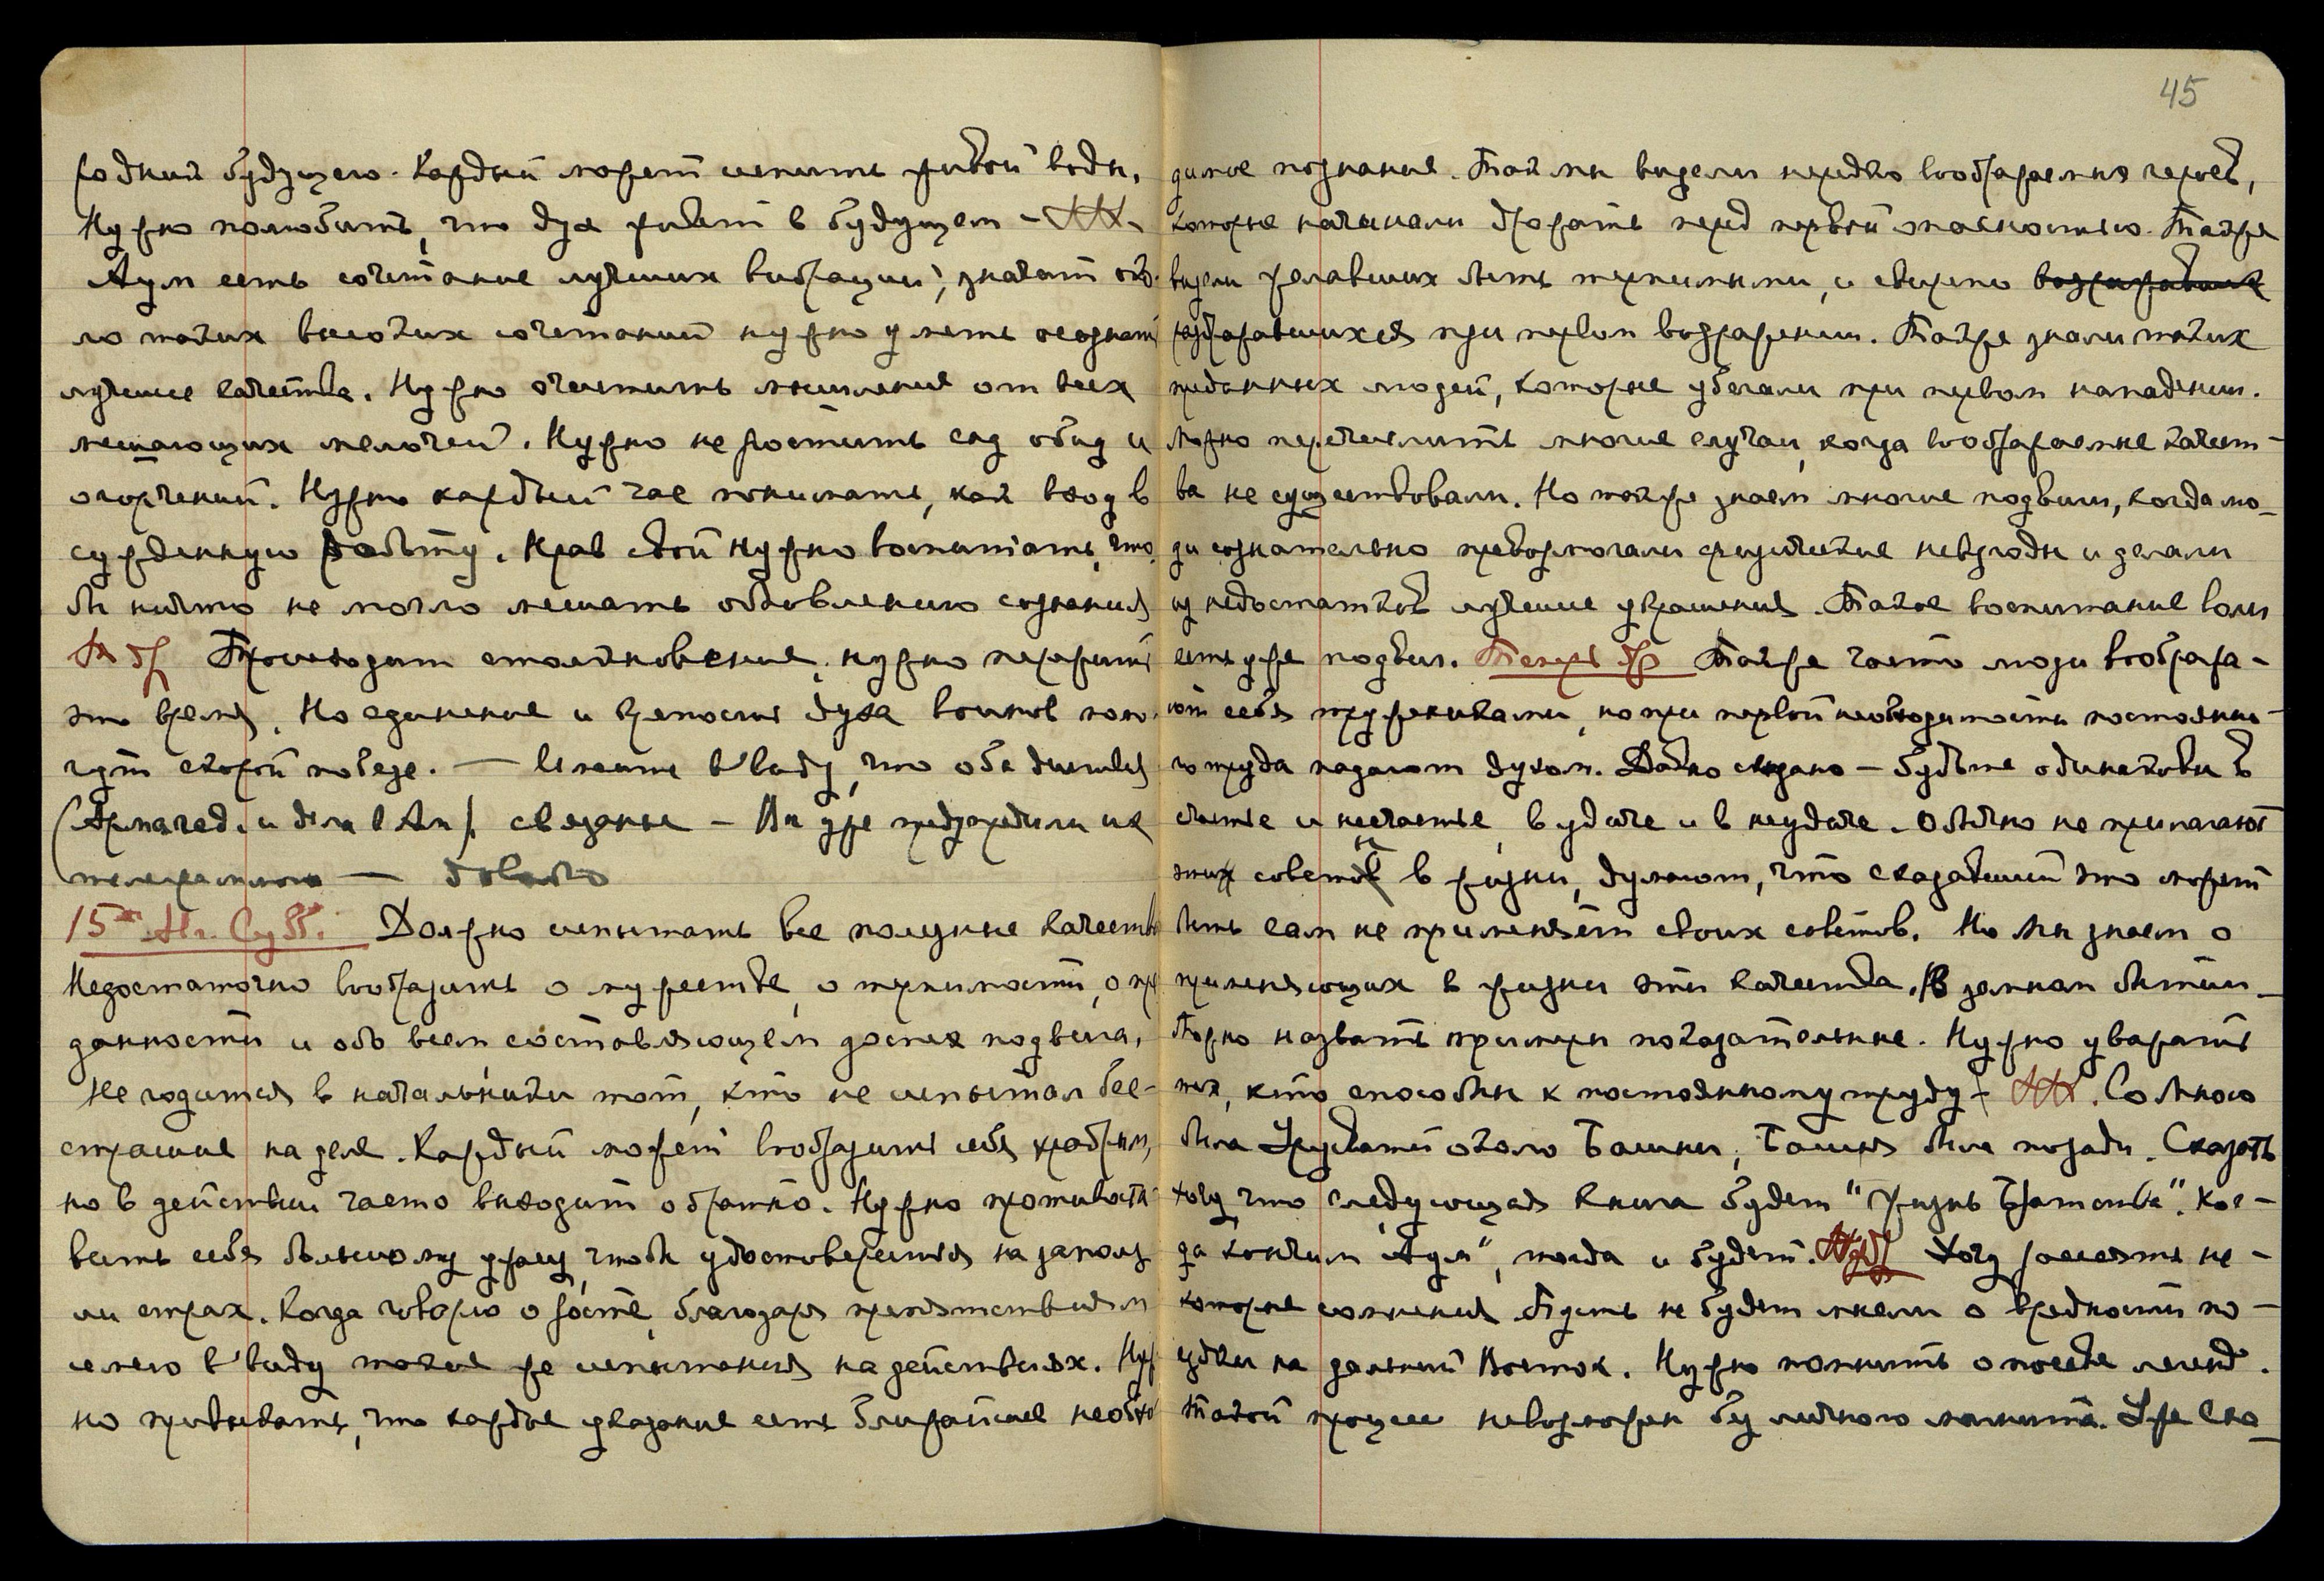 родник будущего. Каждый может испить живой воды.
Нужно полюбить, что дух живёт в будущем –
Аум есть сочетание лучших вибраций, значит око-
ло таких высоких сочетаний нужно уметь осознать
лучшие качества. Нужно очистить мышление от всех
мешающих мелочей. Нужно не растить сад обид и
огорчений. Нужно каждый час понимать, как вход в
сужденную работу. Нрав свой нужно воспитать, что-
бы ничто не могло мешать обновлению сознания
Происходит столкновение, нужно пережить
это время. Но единение и крепость духа воинов помо-
гут скорой победе. — Имейте в виду, что оба действия
(Армагед. и дела в Ам.) связаны – Мы уже предупредили их
телеграммою — довольно
15 Авг. Субб. Должно испытать все полезные качества
Недостаточно вообразить о мужестве, о терпимости, о пре
данности и обо всем составляющем доспех подвига.
Не годится в начальники тот, кто не испытал бес-
страшие на деле. Каждый может вообразить себя храбрым,
но в действии часто выходит обратно. Нужно противоста-
вить себя большому ужасу, чтобы удостовериться на заползу
ли страх. Когда говорю о росте, благодаря препятствиям
имею в виду такие же испытания на действиях. Нуж
но привыкать, что каждое указание есть ближайшее необхо
45
димое познание. Так мы видели нередко воображаемых героев,
которые начинали дрожать перед первой опасностью. Также
видели желавших быть терпимыми, и свирепо возражавших
раздражавшихся при первом возражении. Также знали таких
преданных людей, которые убегали при первом нападении.
Можно перечислить многие случаи, когда воображаемые качест-
ва не существовали. Но также знаем многие подвиги, когда лю-
ди сознательно превозмогали физические невзгоды и делали
из недостатков лучшие украшения. Такое воспитание воли
есть уже подвиг. Также часто люди вообража-
ют себя тружениками, но при первой необходимости постоянно-
го труда падают духом. Давно сказано – будьте одинаковы в
счастье и несчастье, в удаче и в неудаче. Обычно не прилагают
этих советов в жизни, думают, что сказавший это может
быть сам не применяет своих советов. Но Мы знаем о
применяющих в жизни эти качества. В земном бытии
можно назвать примеры показательные. Нужно уважать
тех, кто способны к постоянному труду – Со Мною
была Урусвати около Башни, Башня была позади. Сказать
хочу что следующая книга будет "Жизнь Братства". Ког-
да кончим "Аум", тогда и будет. Хочу рассеять не-
которые сомнения. Пусть не будет мысли о вредности по-
ездки на дальний Восток. Нужно помнить о посеве легенд.
Такой процесс невозможен без личного магнита. Уже ско-